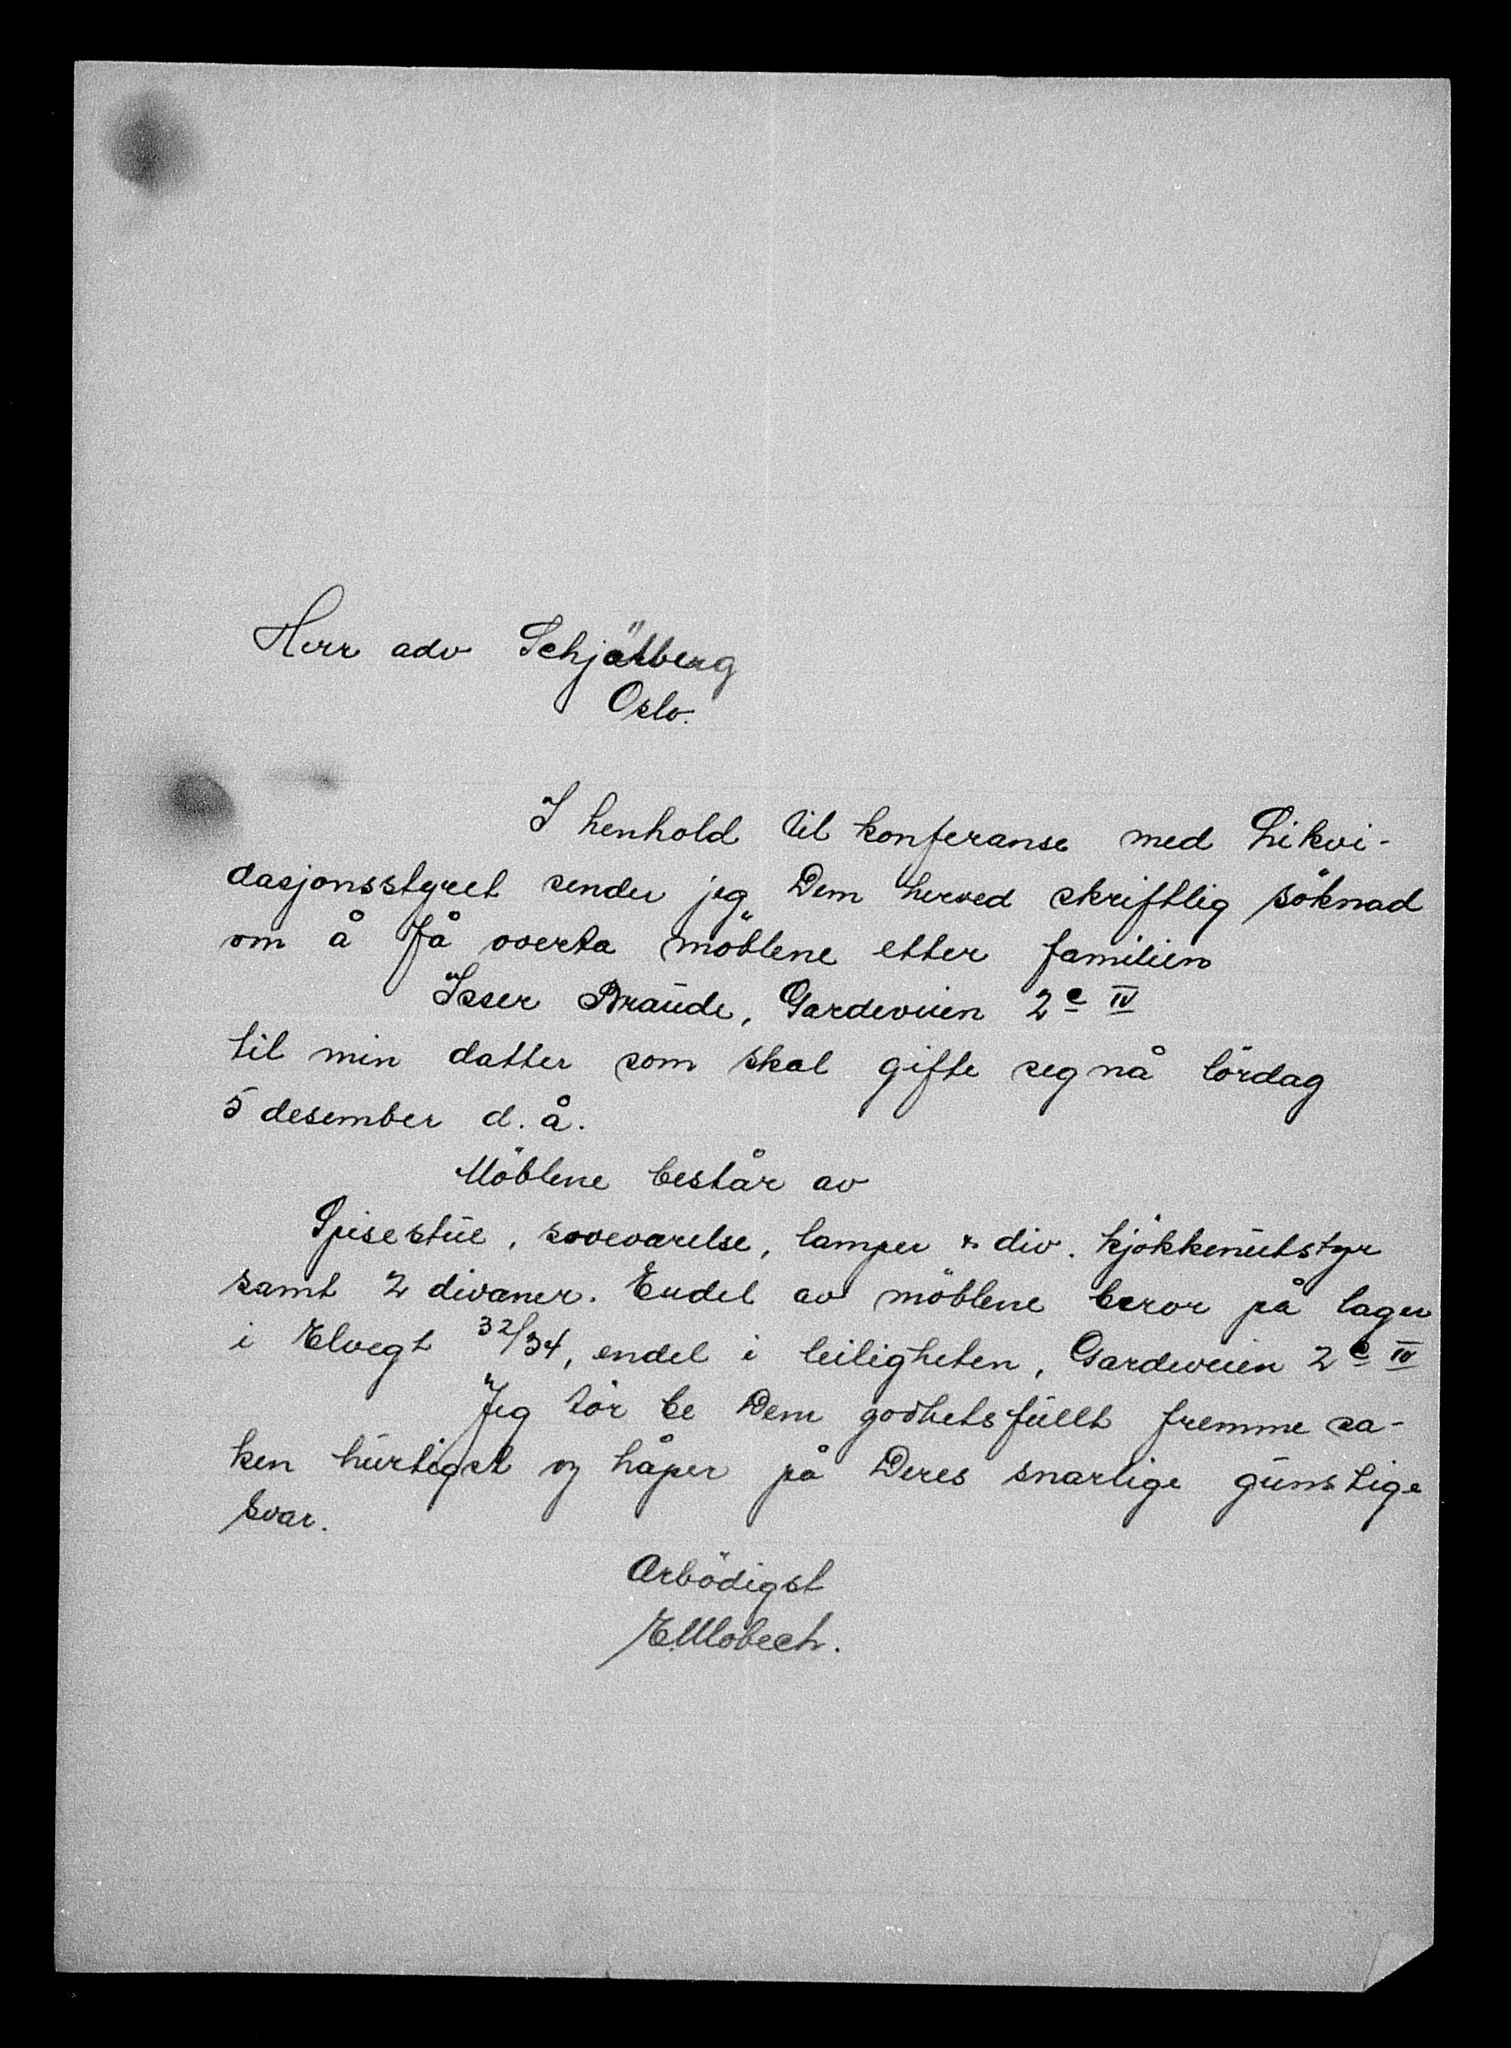 Herr adv Schjötberg
Oslo.
I henhold til konferanse med Likvi-
dasjonsstyret sender jeg Dem herved skriftlig söknad
om å få overta möblene etter familien
Isser Braude, Gardeveien 2c IV
til min datter som skal gifte seg nå lördag
5 desember d. å.
Möblene består av
Spisestue, soveværelse, lamper & div. kjökkenutstyr
samt 2 divaner. Endel av möblene beror på lager
i Elvegt 32/34, endel i leiligheten, Gardeveien 2c IV
Jeg tör be Dem godhetsfullt fremme sa-
ken hurtigst og håper på Deres snarlige gunstige
svar.
Arbödigst
E. Mobech.